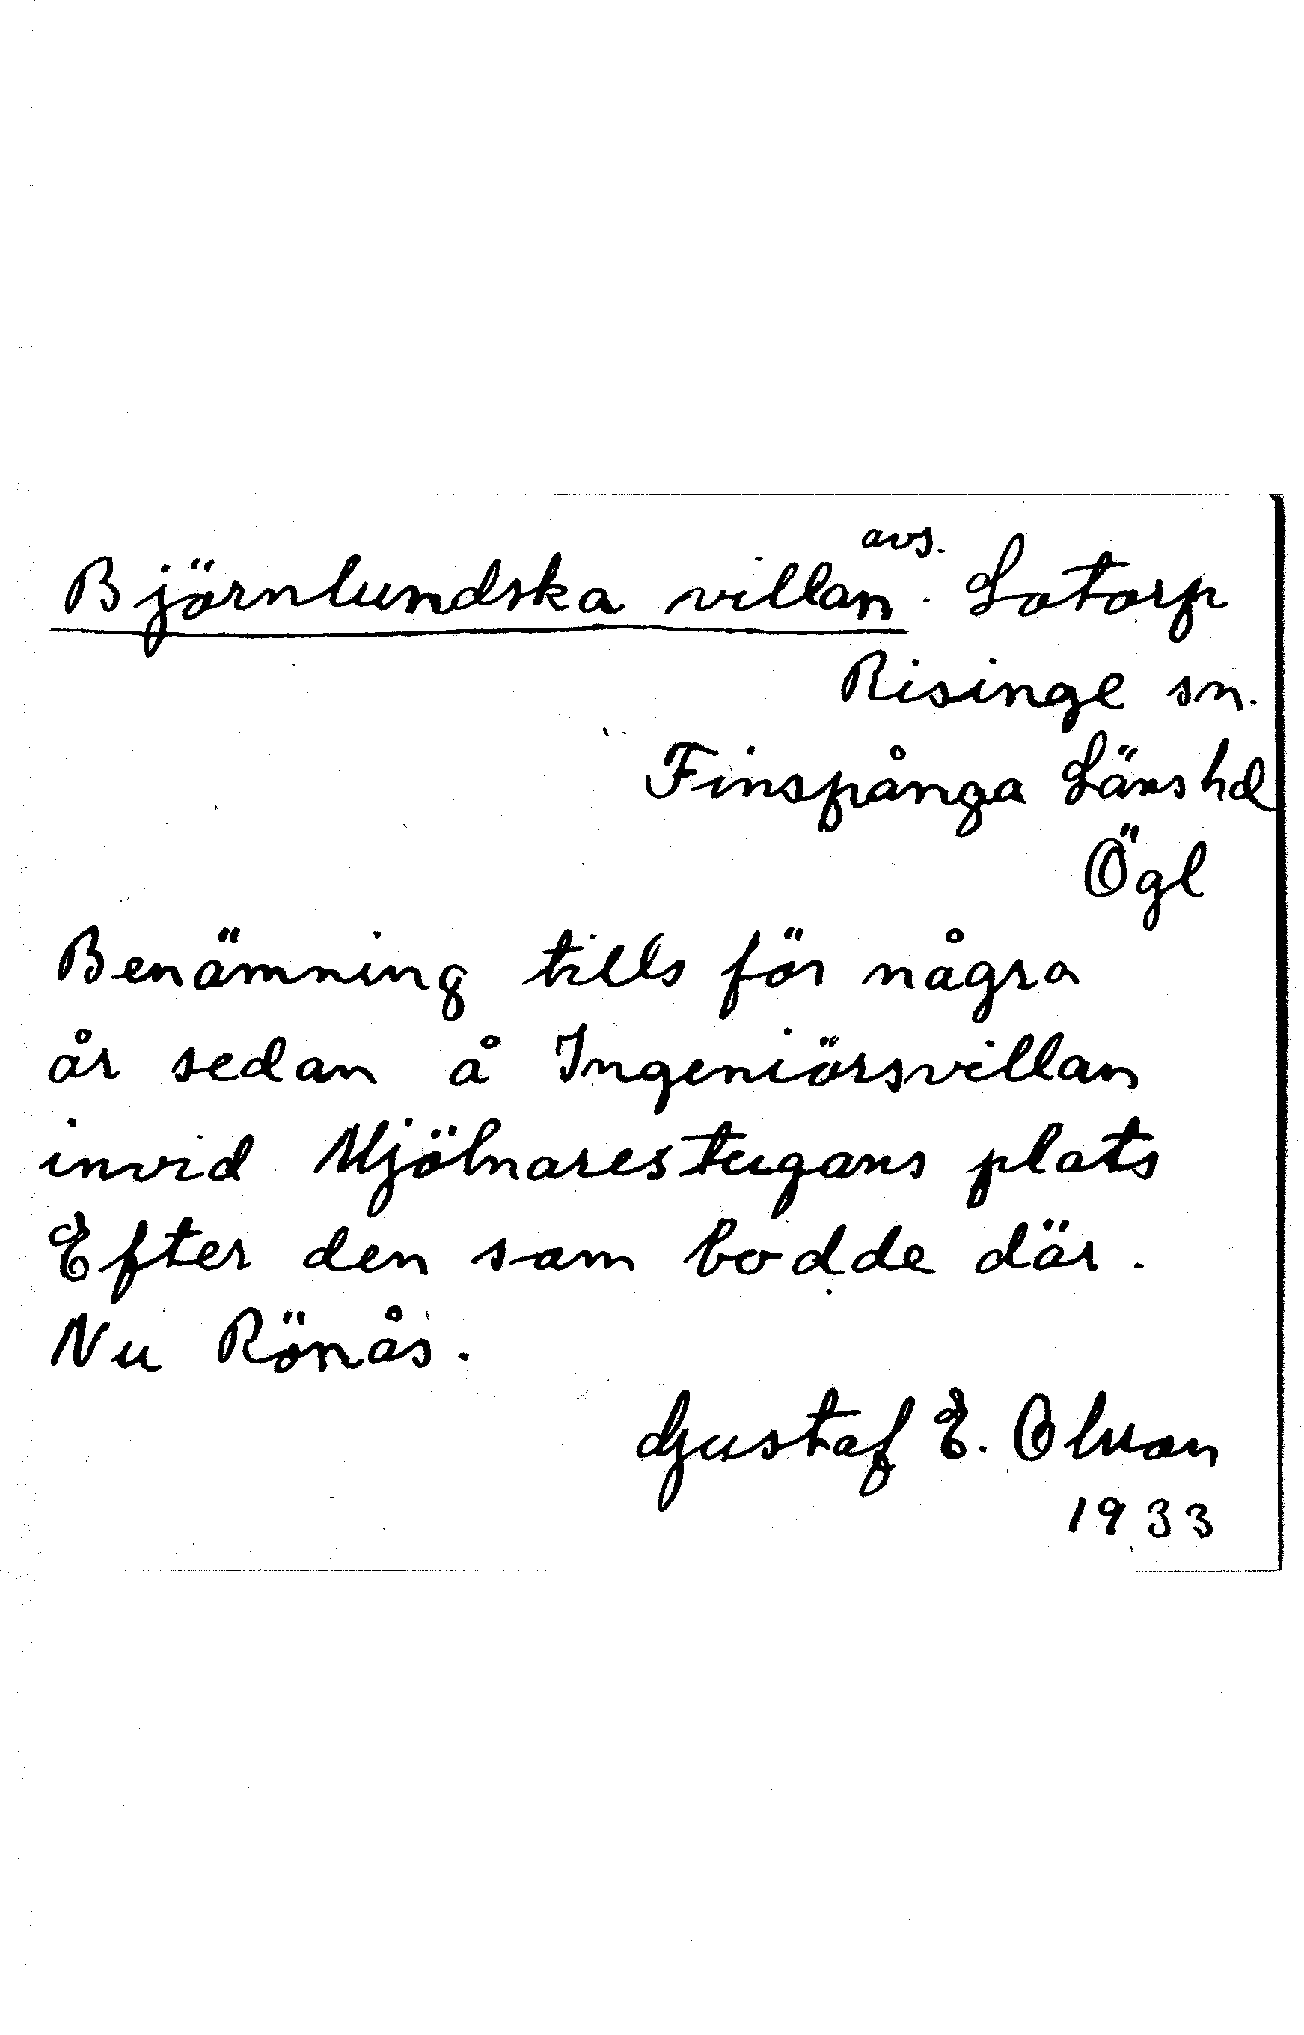 Björnlundska villan avs. Lotorp
Risinge sn.
Finspånga Länshd
Ögl
Benämning tills för några
år sedan å Ingeniörsvillan
invid Mjölnarestugans plats
Efter den som bodde där.
Nu Rönås.
Gustaf E.
1933